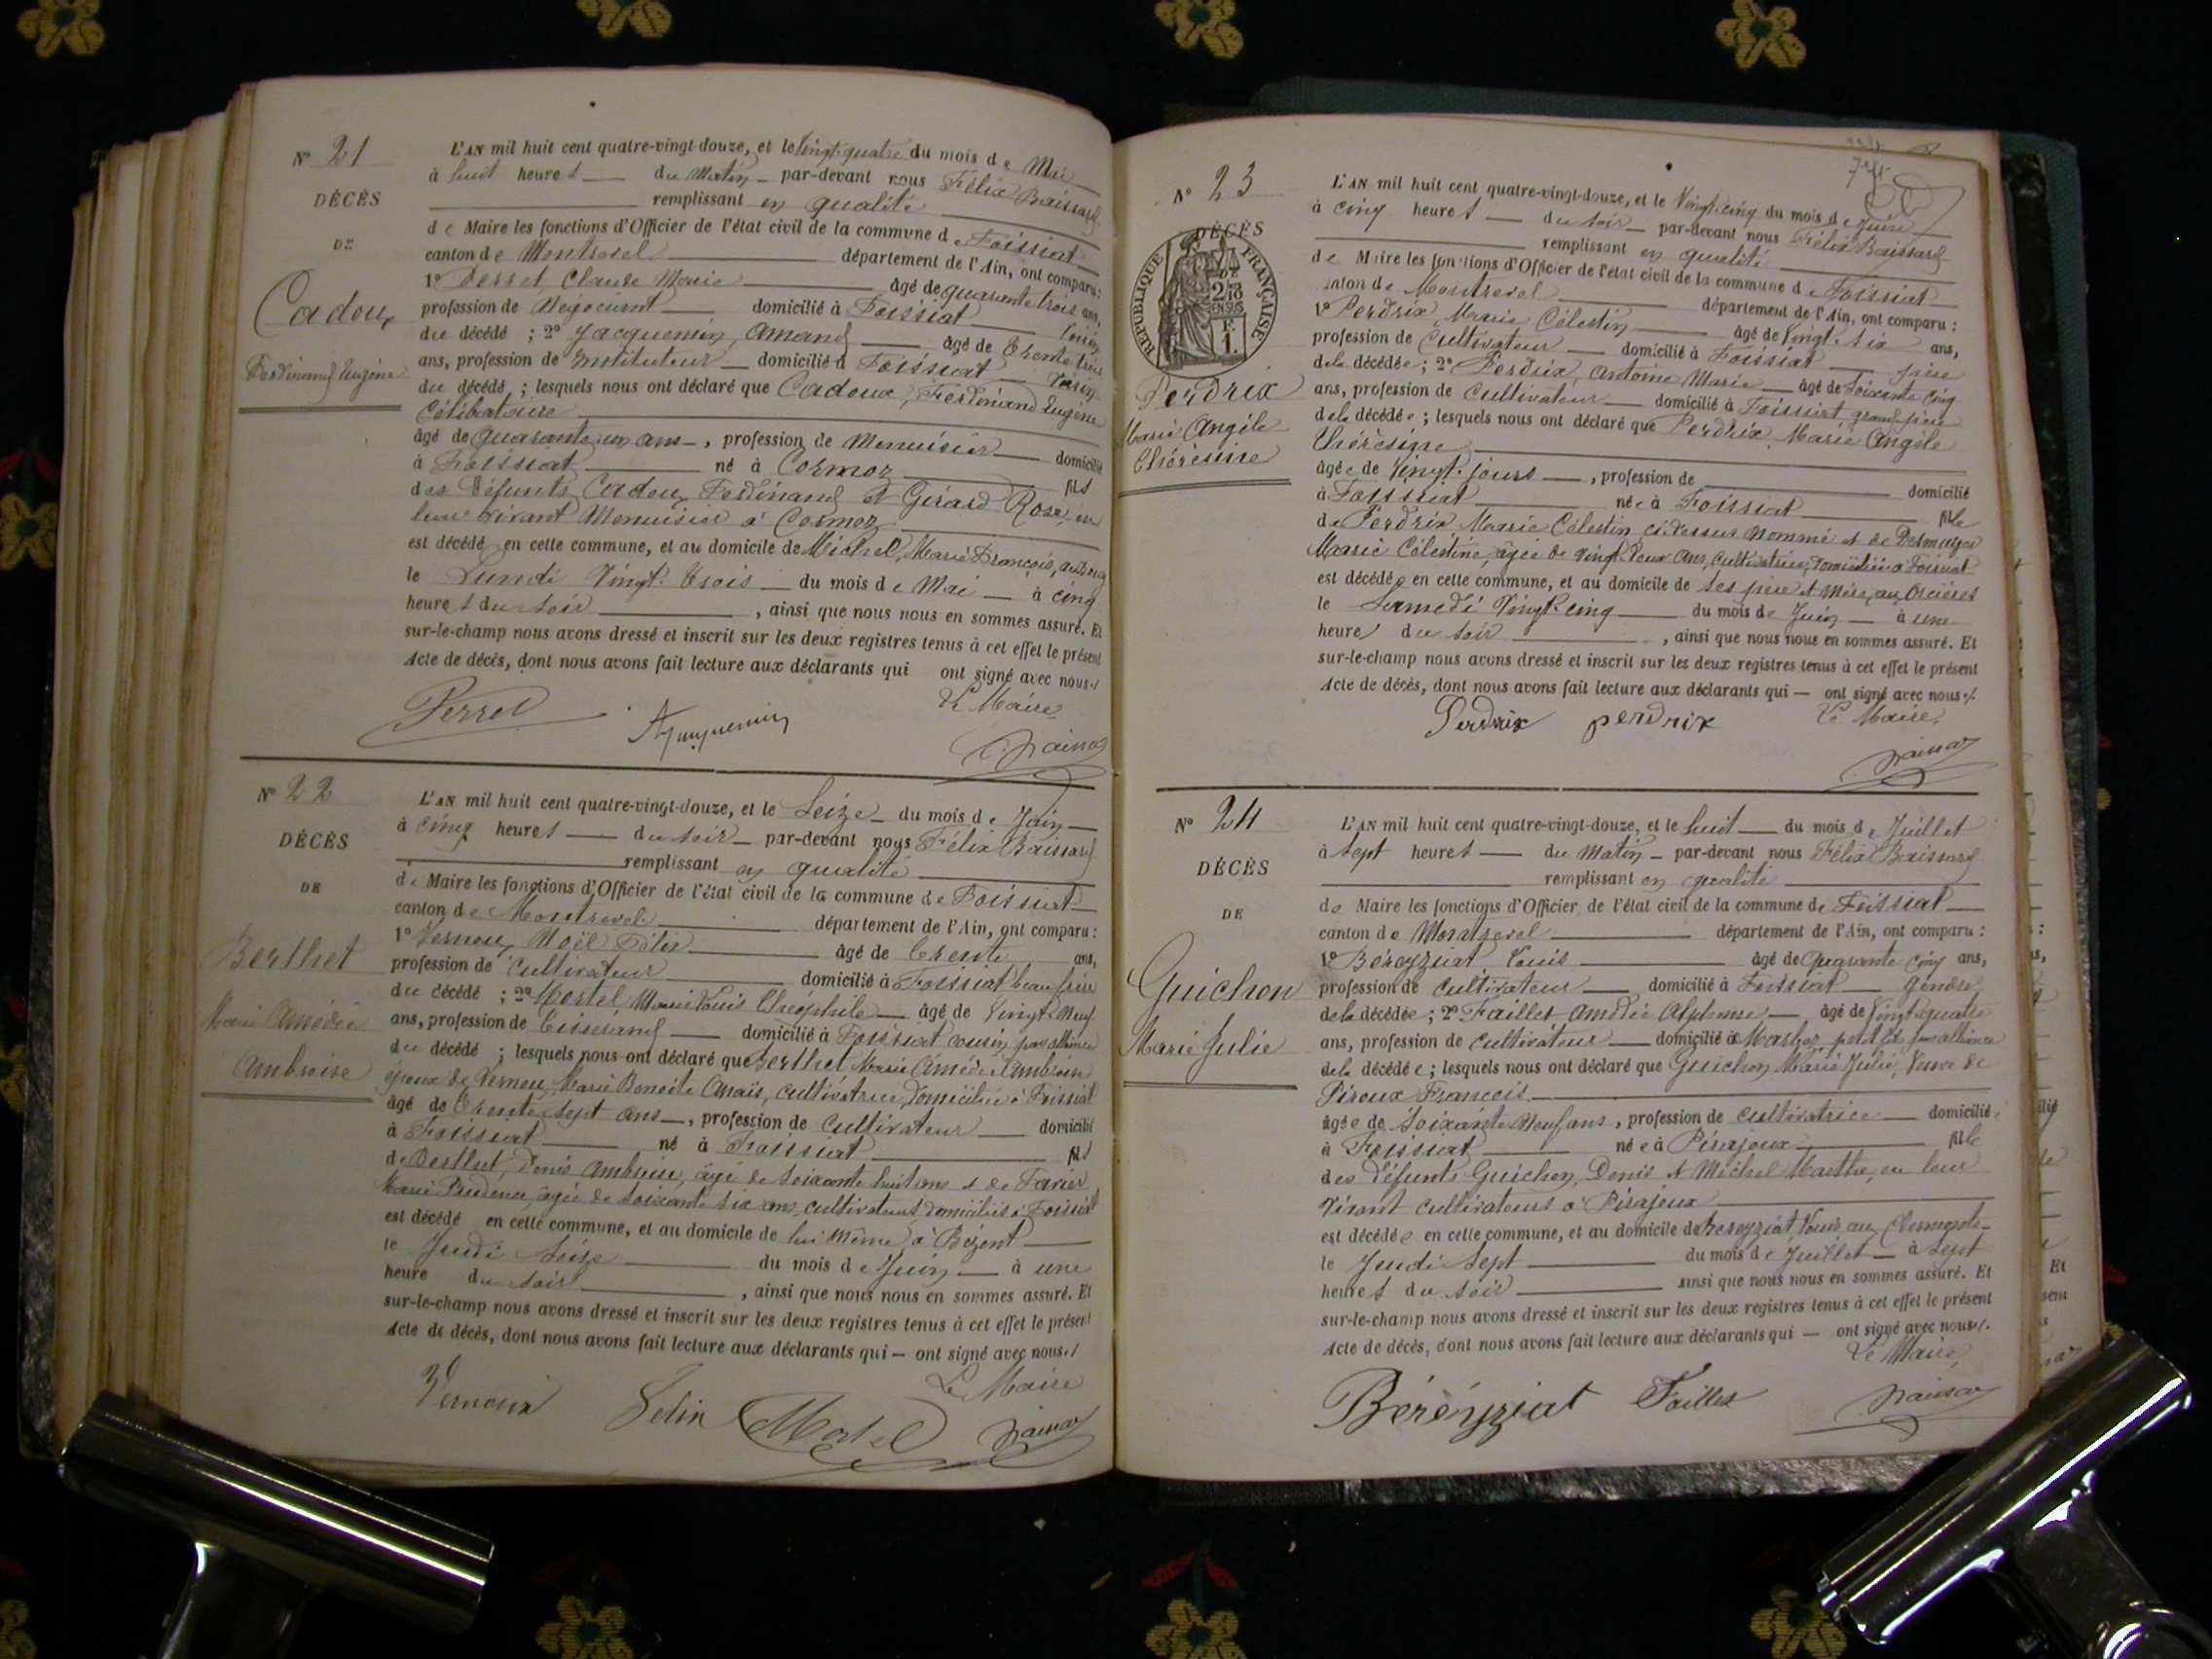 N° 21
DÉCÈS
DE
Cadoux
Ferdinand Eugène
L'AN mil huit cent quatre-vingt-douze, et le Vingt-quatre du mois de Mai
à huit heures du Matin par-devant nous Félix Baissard
remplissant en qualité
de Maire les fonctions d'Officier de l'état civil de la commune de Foissiat
canton de Montrevel département de l'Ain, ont comparu :
1° Perret, Claude Marie âgé de quarante trois ans,
profession de Négociant domicilié à Foissiat voisin
du décédé ; 2° Jacquemin, Amand âgé de trente trois
ans, profession de Instituteur domicilié à Foissiat voisin
du décédé ; lesquels nous ont déclaré que Cadoux, Ferdinand Eugène
Célibataire
âgé de quarante un ans , profession de Menuisier domicilié
à Foissiat né à Cormoz fils
des défunts Cadoux Ferdinand et Girard Rose, en
leur vivant Menuisier à Cormoz
est décédé en cette commune, et au domicile de Michel, Marie François,
le Lundi Vingt trois du mois de Mai à cinq
heures du soir , ainsi que nous nous en sommes assuré. Et
sur-le-champ nous avons dressé et inscrit sur les deux registres tenus à cet effet le présent
Acte de décès, dont nous avons fait lecture aux déclarants qui ont signé avec nous./
Le Maire
Perret AJacquemin
N° 22
DÉCÈS
DE
Berthet
Marie Amédée
Ambroise
L'AN mil huit cent quatre-vingt-douze, et le Seize du mois de Juin
à cinq heures du soir par-devant nous Félix Baissard
remplissant en qualité
de Maire les fonctions d'Officier de l'état civil de la commune de Foissiat
canton de Montrevel département de l'Ain, ont comparu :
1° Vernoux Noël Félix âgé de trente ans,
profession de cultivateur domicilié à Foissiat beau frère
du décédé ; 2° Mortel, Marie Louis Théophile âgé de Vingt Neuf
ans, profession de Tisserand domicilié à Foissiat cousin par alliance
du décédé ; lesquels nous ont déclaré que Berthet Marie Amédée Ambroise
époux de Vernoux, Marie Benoite Anaïs, cultivatrice, domiciliée à Foissiat
âgé de trente sept ans , profession de cultivateur domicilié
à Foissiat né à Foissiat fils
de Berthet, Denis Ambroise, âgé de soixante huit ans et de Favier
Marie Prudence, âgée de soixante six ans, cultivateurs, domiciliés à Foissiat
est décédé en cette commune, et au domicile de lui même, à Bézent
le Jeudi Seize du mois de Juin à une
heure du soir , ainsi que nous nous en sommes assuré. Et
sur-le-champ nous avons dressé et inscrit sur les deux registres tenus à cet effet le présent
Acte de décès, dont nous avons fait lecture aux déclarants qui — ont signé avec nous./
Le Maire
Vernoux Félix Mortel
N° 23
DÉCÈS
DE
RÉPUBLIQUE FRANÇAISE
2/10
EN SUS
Perdrix
Marie Angèle
Thérésine
L'AN mil huit cent quatre-vingt-douze, et le Vingt-cinq du mois de Juin
à cinq heures du soir par-devant nous Félix Baissard
remplissant en qualité
de Maire les fonctions d'Officier de l'état civil de la commune de Foissiat
canton de Montrevel département de l'Ain, ont comparu :
1° Perdrix Marie Célestin âgé de Vingt-six ans,
profession de Cultivateur domicilié à Foissiat père
de la décédée ; 2° Perdrix, Antoine Marie âgé de Soixante cinq
ans, profession de cultivateur domicilié à Foissiat grand-père
de la décédée ; lesquels nous ont déclaré que Perdrix Marie Angèle
Thérésine
âgée de Vingt jours , profession de domicilié
à Foissiat née à Foissiat fille
de Perdrix Marie Célestin ci-dessus nommé et de
Marie Célestine, âgée de vingt deux ans, cultivatrice, domiciliée à Foissiat
est décédée en cette commune, et au domicile de ses père et mère, au
le Samedi Vingt cinq du mois de Juin à une
heure du soir , ainsi que nous nous en sommes assuré. Et
sur-le-champ nous avons dressé et inscrit sur les deux registres tenus à cet effet le présent
Acte de décès, dont nous avons fait lecture aux déclarants qui — ont signé avec nous./
Perdrix perdrix Le Maire,
N° 24
DÉCÈS
DE
Guichon
Marie Julie
L'AN mil huit cent quatre-vingt-douze, et le huit du mois de Juillet
à sept heures du Matin par-devant nous Félix Baissard
remplissant en qualité
de Maire les fonctions d'Officier de l'état civil de la commune de Foissiat
canton de Montrevel département de l'Ain, ont comparu :
1° Béreyziat Louis âgé de quarante cinq ans,
profession de cultivateur domicilié à Foissiat gendre
de la décédée ; 2° Faillet Amédée Alphonse âgé de Vingt quatre
ans, profession de cultivateur domicilié à petit fils par alliance
de la décédée ; lesquels nous ont déclaré que Guichon, Marie Julie, Veuve de
Piroux François
âgée de Soixante Neuf ans, profession de cultivatrice domiciliée
à Foissiat née à Pirajoux fille
des défunts Guichon, Denis et Michel Marthe, en leur
vivant cultivateurs à Pirajoux
est décédée en cette commune, et au domicile de Béreyziat Louis, au
le Jeudi Sept du mois de Juillet à sept
heures du soir ainsi que nous nous en sommes assuré. Et
sur-le-champ nous avons dressé et inscrit sur les deux registres tenus à cet effet le présent
Acte de décès, dont nous avons fait lecture aux déclarants qui — ont signé avec nous./
Le Maire,
Béréyziat Faillet